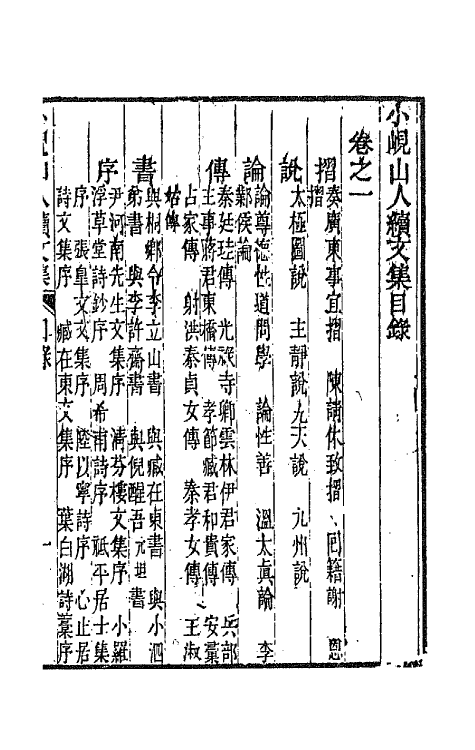 小峴山人續文集目錄
卷之一
摺
奏廣東事宜摺 陳請休致摺 回籍謝 恩
摺
說
太極圖說 主靜說 九天說 九州說
論
論尊德性道問學 論性善 溫太真論 李
鄴侯論
傳
秦廷珪傳 光祿寺卿雲林伊君家傳 兵部
主事蔣君東橋傳 孝節臧君和貴傳 安彙
占家傳 射洪泰貞女傳 秦孝女傳 王淑
姑傳
書
與桐鄉令李立山書 與臧在東書 與小泗
弟書 與李許齋書 與倪醒吾元坦書
序
尹河南先生文集序 清芬樓文集序 小羅
浮草堂詩鈔序 周希甫詩序 祗平居士集
序 張皐文文集序 陸以寧詩序 心止居
詩文集序 臧在東文集序 葉白湖詩藁序
小峴山人續文集 目錄 一